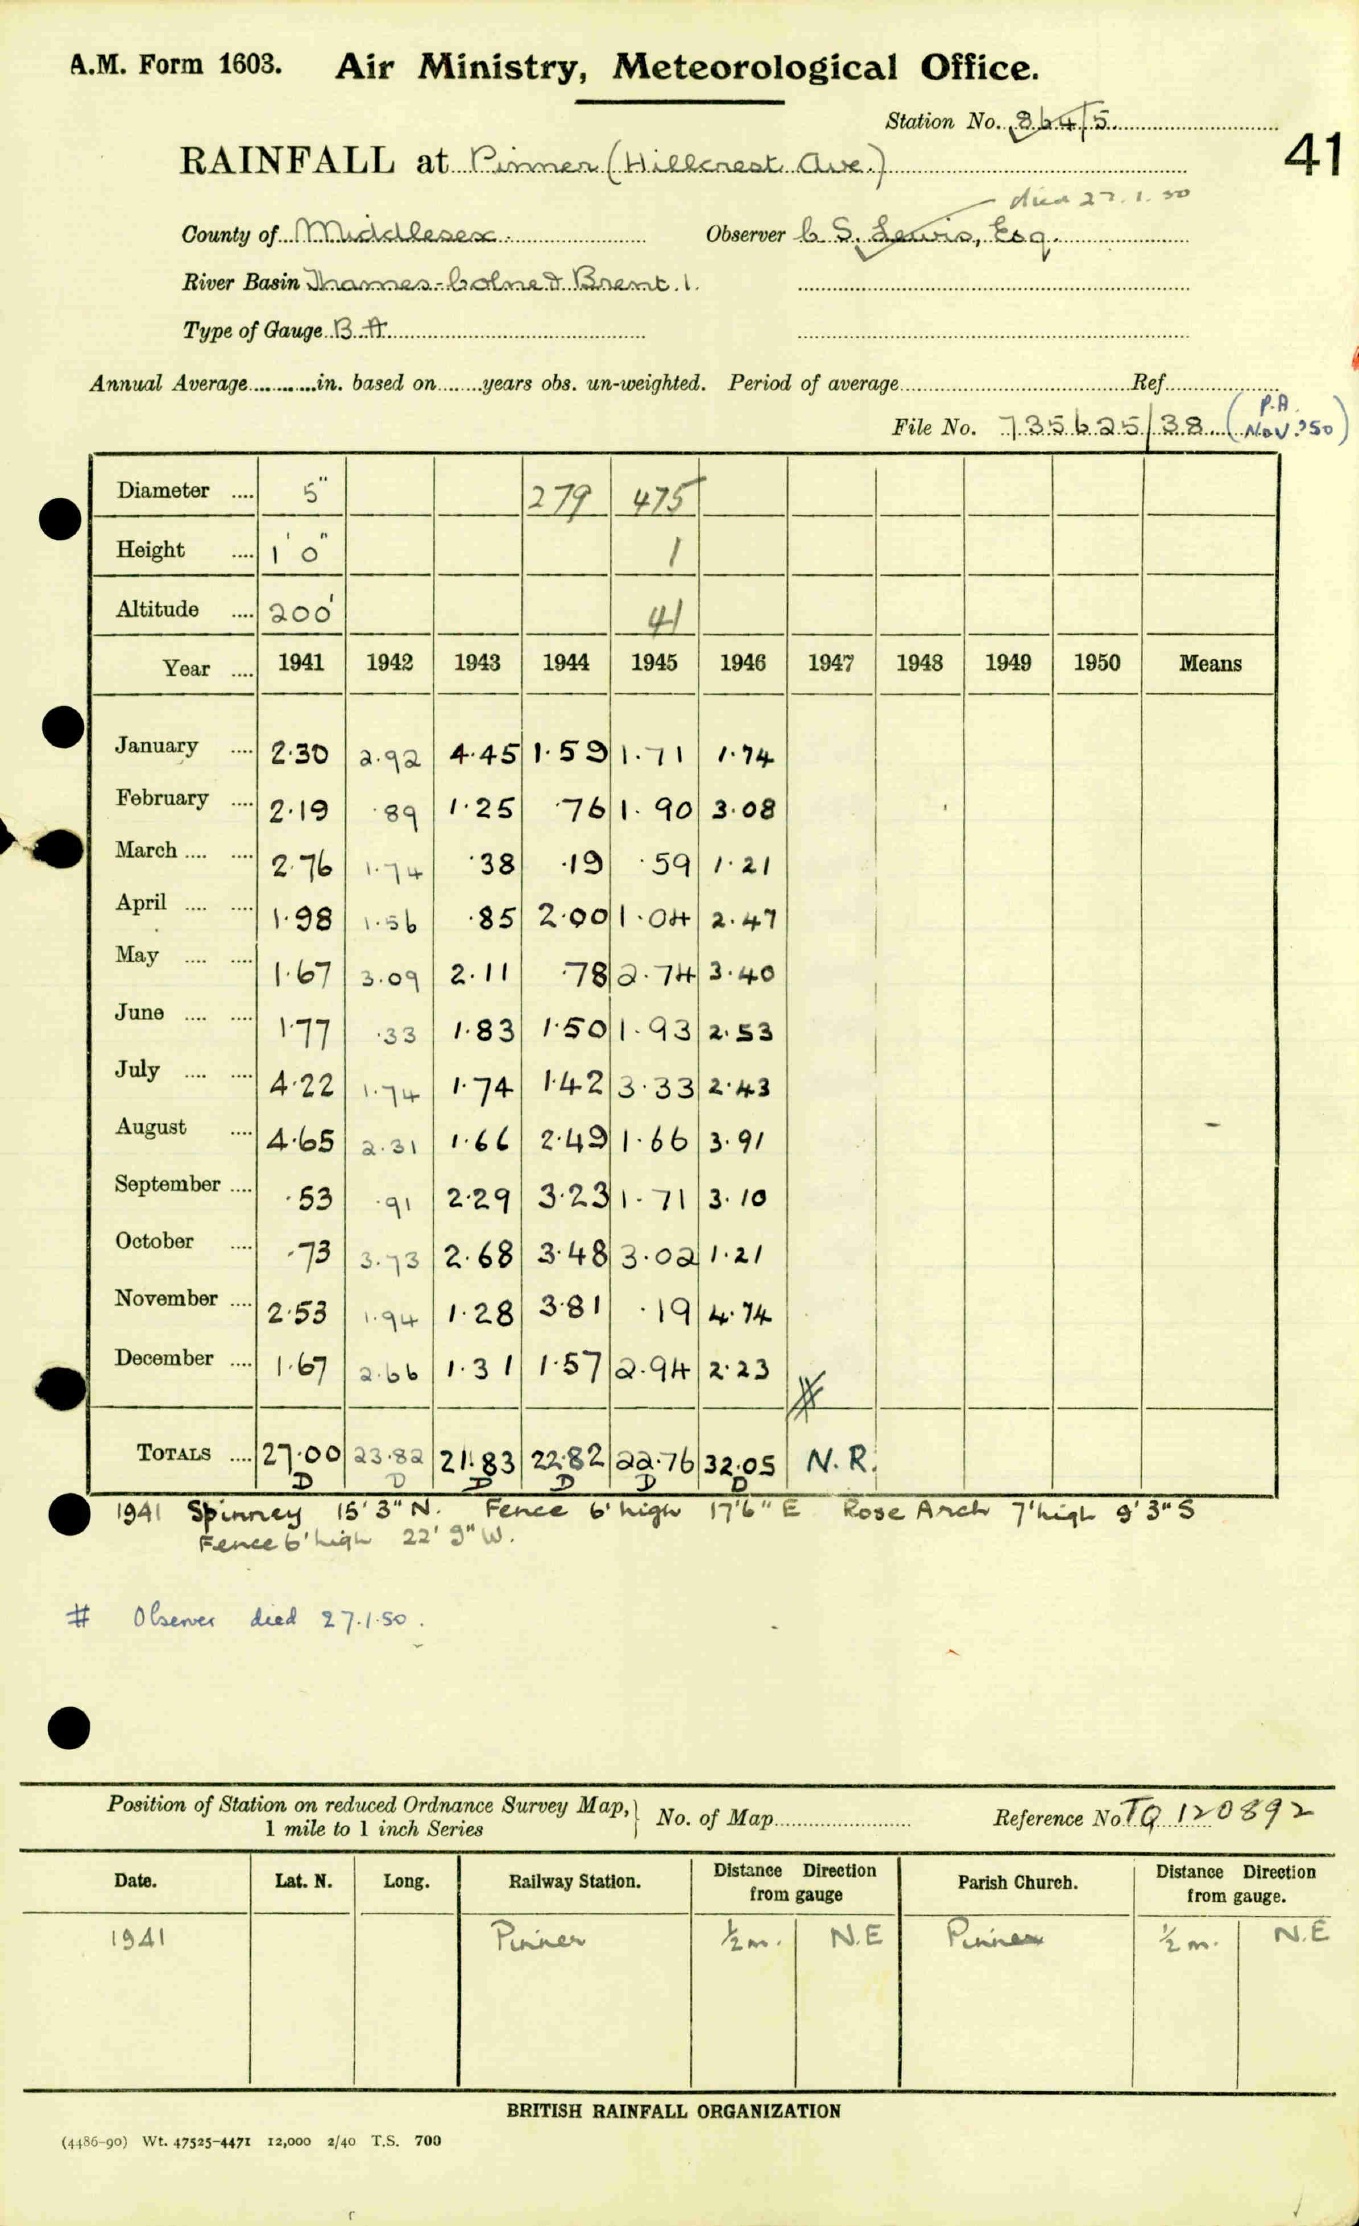 A.M. Form 1603. Air Ministry, Meteorological Office.
Station No. 864/5
41
RAINFALL at Pinner (Hillcrest Ave.)
died 27.1.50
County of Middlesex. Observer C S. Lewis, Esq.
River Basin Thames-Colne & Brent. 1.
Type of Gauge B.A.
Annual Average............in. based on........years obs. un-weighted. Period of average Ref.
File No. 735625/38 (P.A. Nov. '50)
Diameter .... 5" 279 475
Height .... 1' 0" 1
Altitude .... 200' 41
Year .... 1941 1942 1943 1944 1945 1946 1947 1948 1949 1950 Means
January .... 2.30 2.92 4.45 1.59 1.71 1.74
February .... 2.19 .89 1.25 .76 1.90 3.08
March .... .... 2.76 1.74 .38 .19 .59 1.21
April .... .... 1.98 1.56 .85 2.00 1.04 2.47
May .... .... 1.67 3.09 2.11 .78 2.74 3.40
June .... .... 1.77 .33 1.83 1.50 1.93 2.53
July .... .... 4.22 1.74 1.74 1.42 3.33 2.43
August .... 4.65 2.31 1.66 2.49 1.66 3.91
September .... .53 .91 2.29 3.23 1.71 3.10
October .... .73 3.73 2.68 3.48 3.02 1.21
November .... 2.53 1.94 1.28 3.81 .19 4.74
December .... 1.67 2.66 1.31 1.57 2.94 2.23 #
TOTALS .... 27.00 23.82 21.83 22.82 22.76 32.05 N.R.
D D D D D D
1941 Spinney 15' 3" N. Fence 6' high 17'6" E Rose Arch 7' high 9' 3" S
Fence 6' high 22' 9" W.
# Observer died 27.1.50.
Position of Station on reduced Ordnance Survey Map, 1 mile to 1 inch Series } No. of Map Reference No TQ 120892
Date. Lat. N. Long. Railway Station. Distance Direction from gauge Parish Church. Distance Direction from gauge.
1941 Pinner ½ m. N.E Pinner ½ m. N.E
BRITISH RAINFALL ORGANIZATION
(4486-90) Wt. 47525-4471 12,000 2/40 T.S. 700